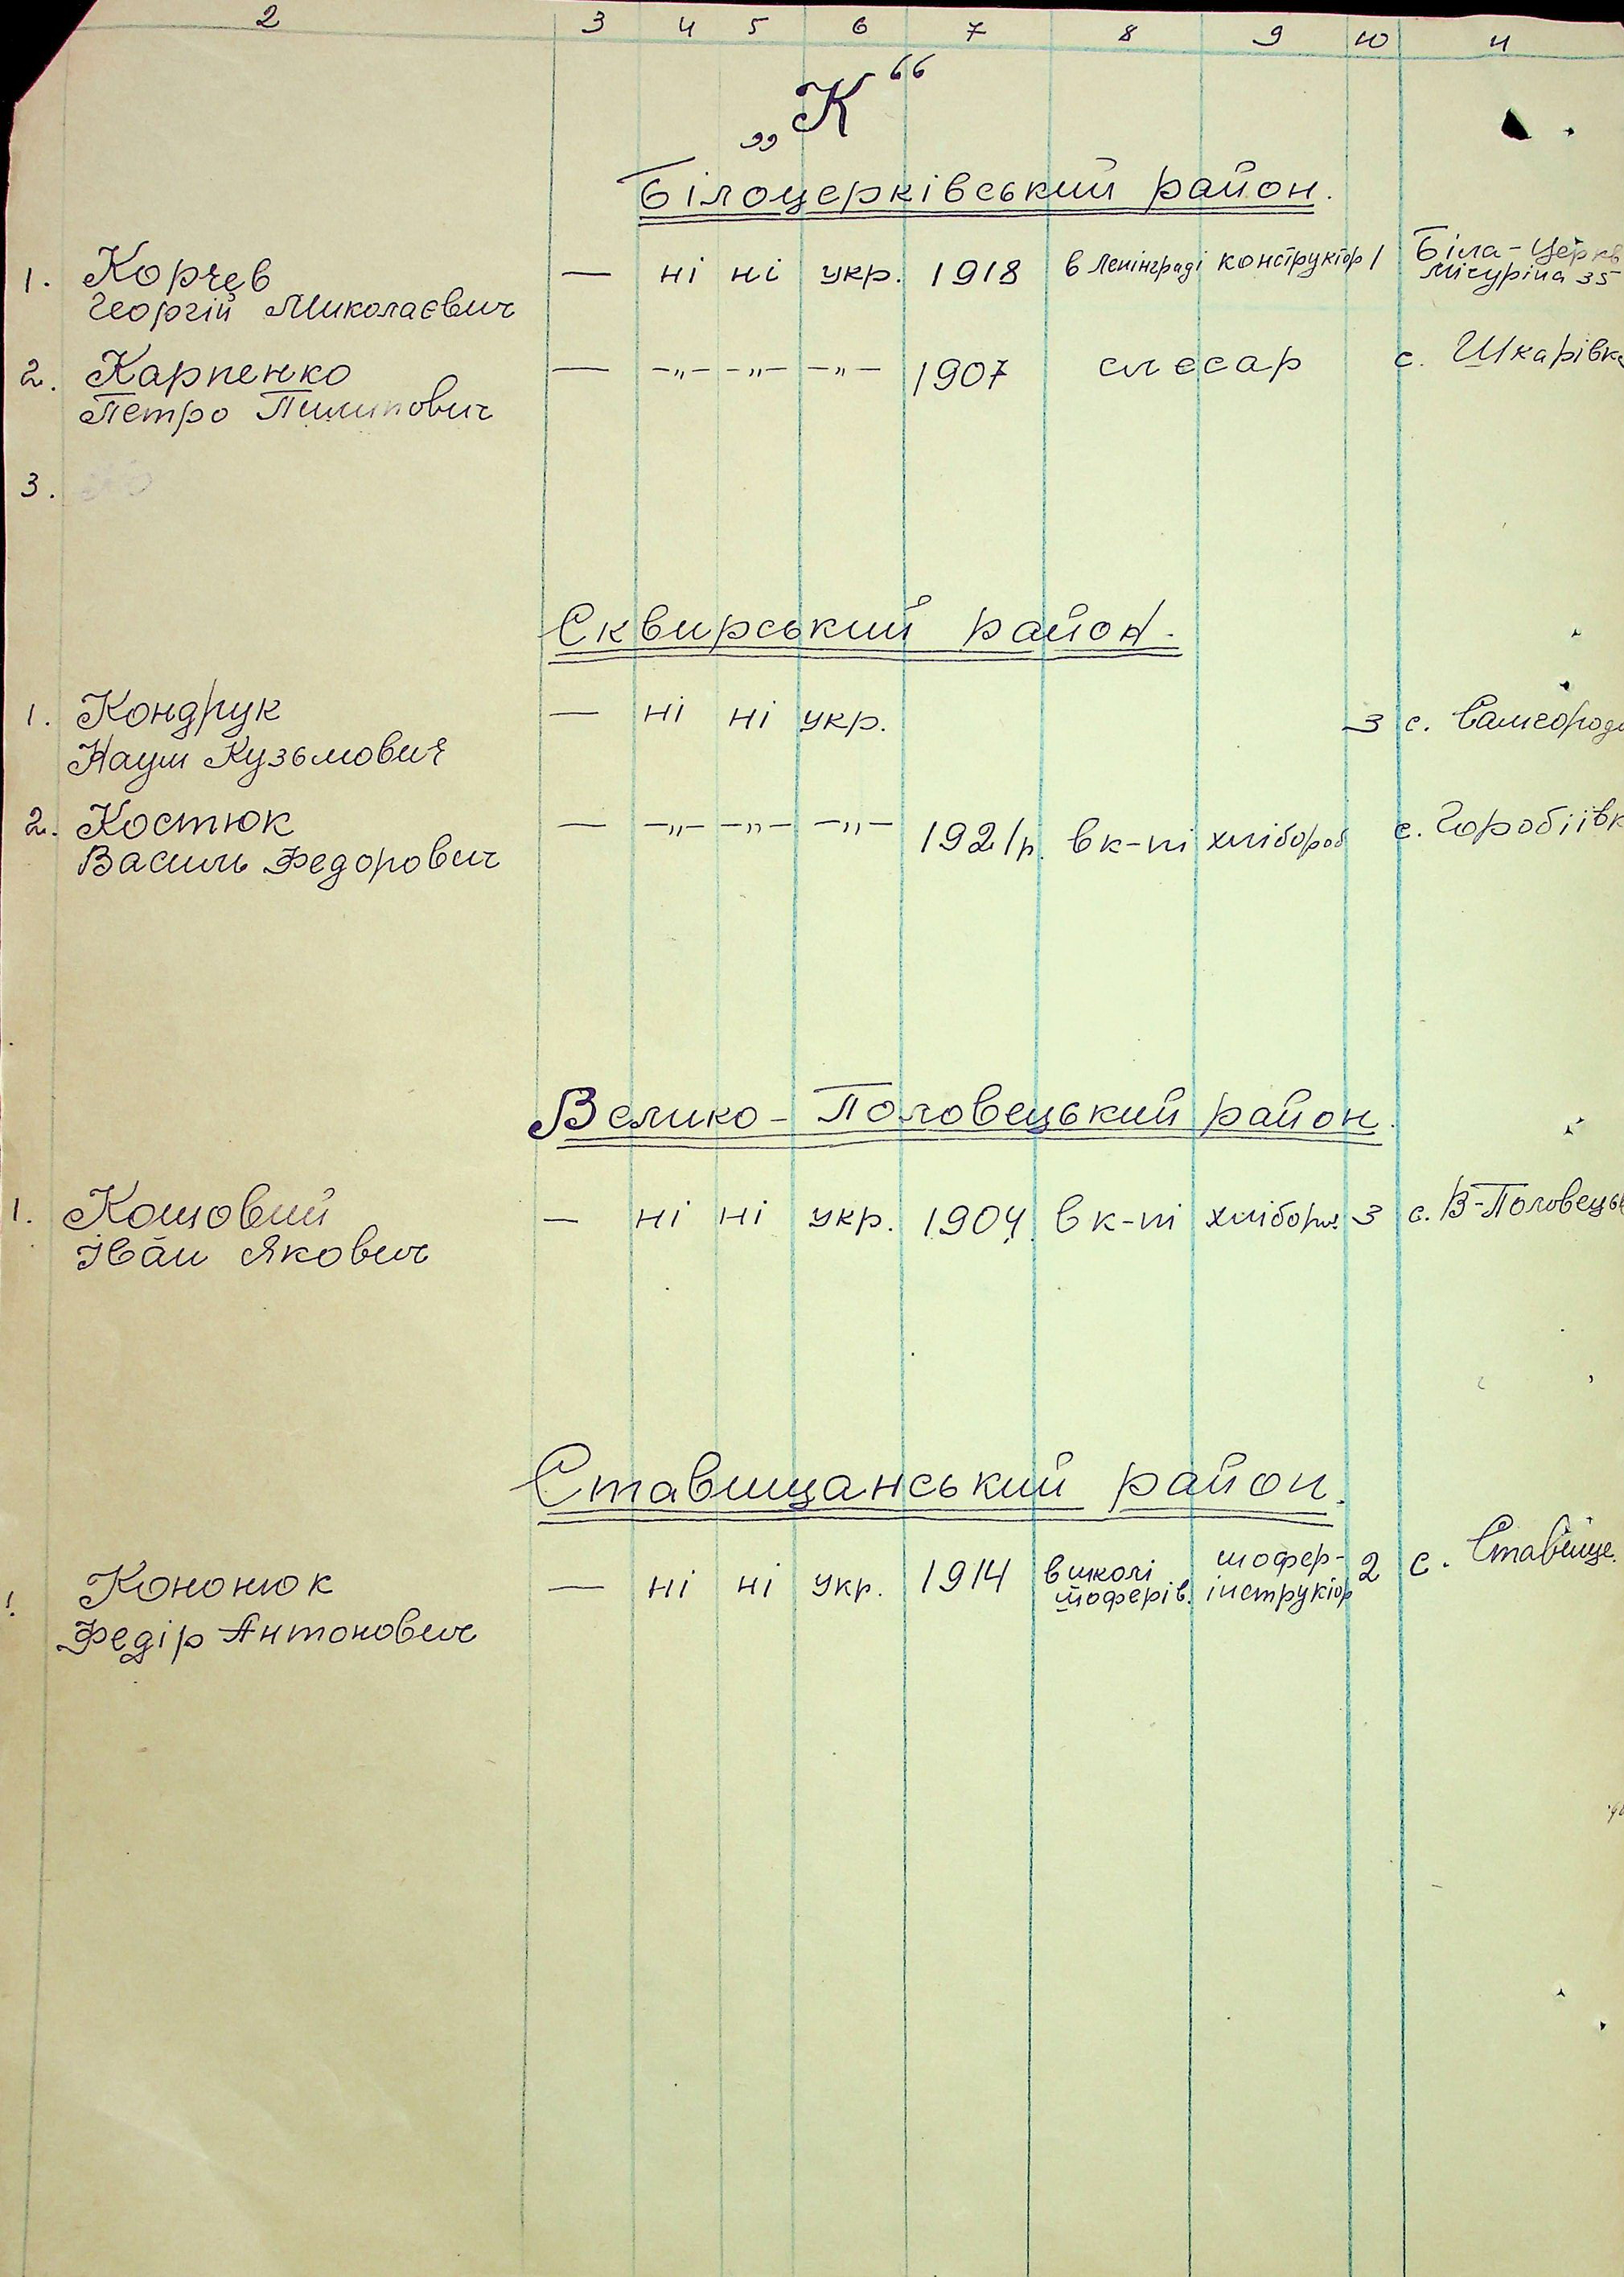 2 3 4 5 6 7 8 9 10 11
„К“
Білоцерківський район.
1. Корчев — ні ні укр. 1918 в Ленінграді конструктор 1 Біла-Церкв
Георгій Миколаєвич Мічуріна 35
2. Карпенко — –„– –„– –„– 1907 слєсар с. Шкарівка
Петро Пилипович
3.
Сквирський район.
1. Кондрук — ні ні укр. 3 с. Самгородо
Наум Кузьмович
2. Костюк — –„– –„– –„– 1921р. в к-пі хлібороб с. Горобіївк
Василь Федорович
Велико-Половецький район.
1. Кошовий — ні ні укр. 1904 в к-пі хлібороб 3 с. В-Половецьк
Іван Якович
Ставищанський район.
1. Кононюк — ні ні укр. 1914 в школі шофер- 2 с. Ставище.
шоферів. інструктор
Федір Антонович